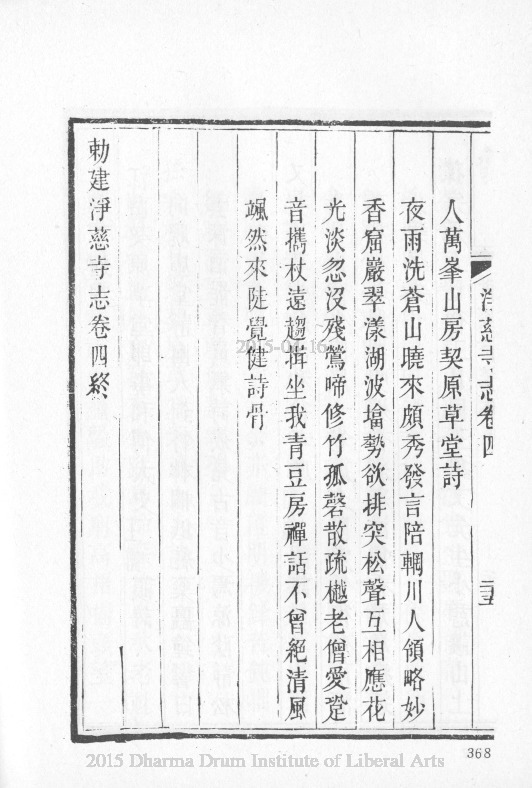 淨慈寺志卷四
人萬峯山房契原草堂詩
夜雨洗蒼山曉來頗秀發言陪輞川人領略妙
香窟巖翠漾湖波墖勢欲排突松聲互相應花
光淡忽沒殘鶯啼修竹孤磬散疏樾老僧愛跫
音攜杖遠趨揖坐我青豆房禪話不曾絕清風
颯然來陡覺健詩骨
勅建淨慈寺志卷四終
368
2015-04-16
2015 Dharma Drum Institute of Liberal Arts